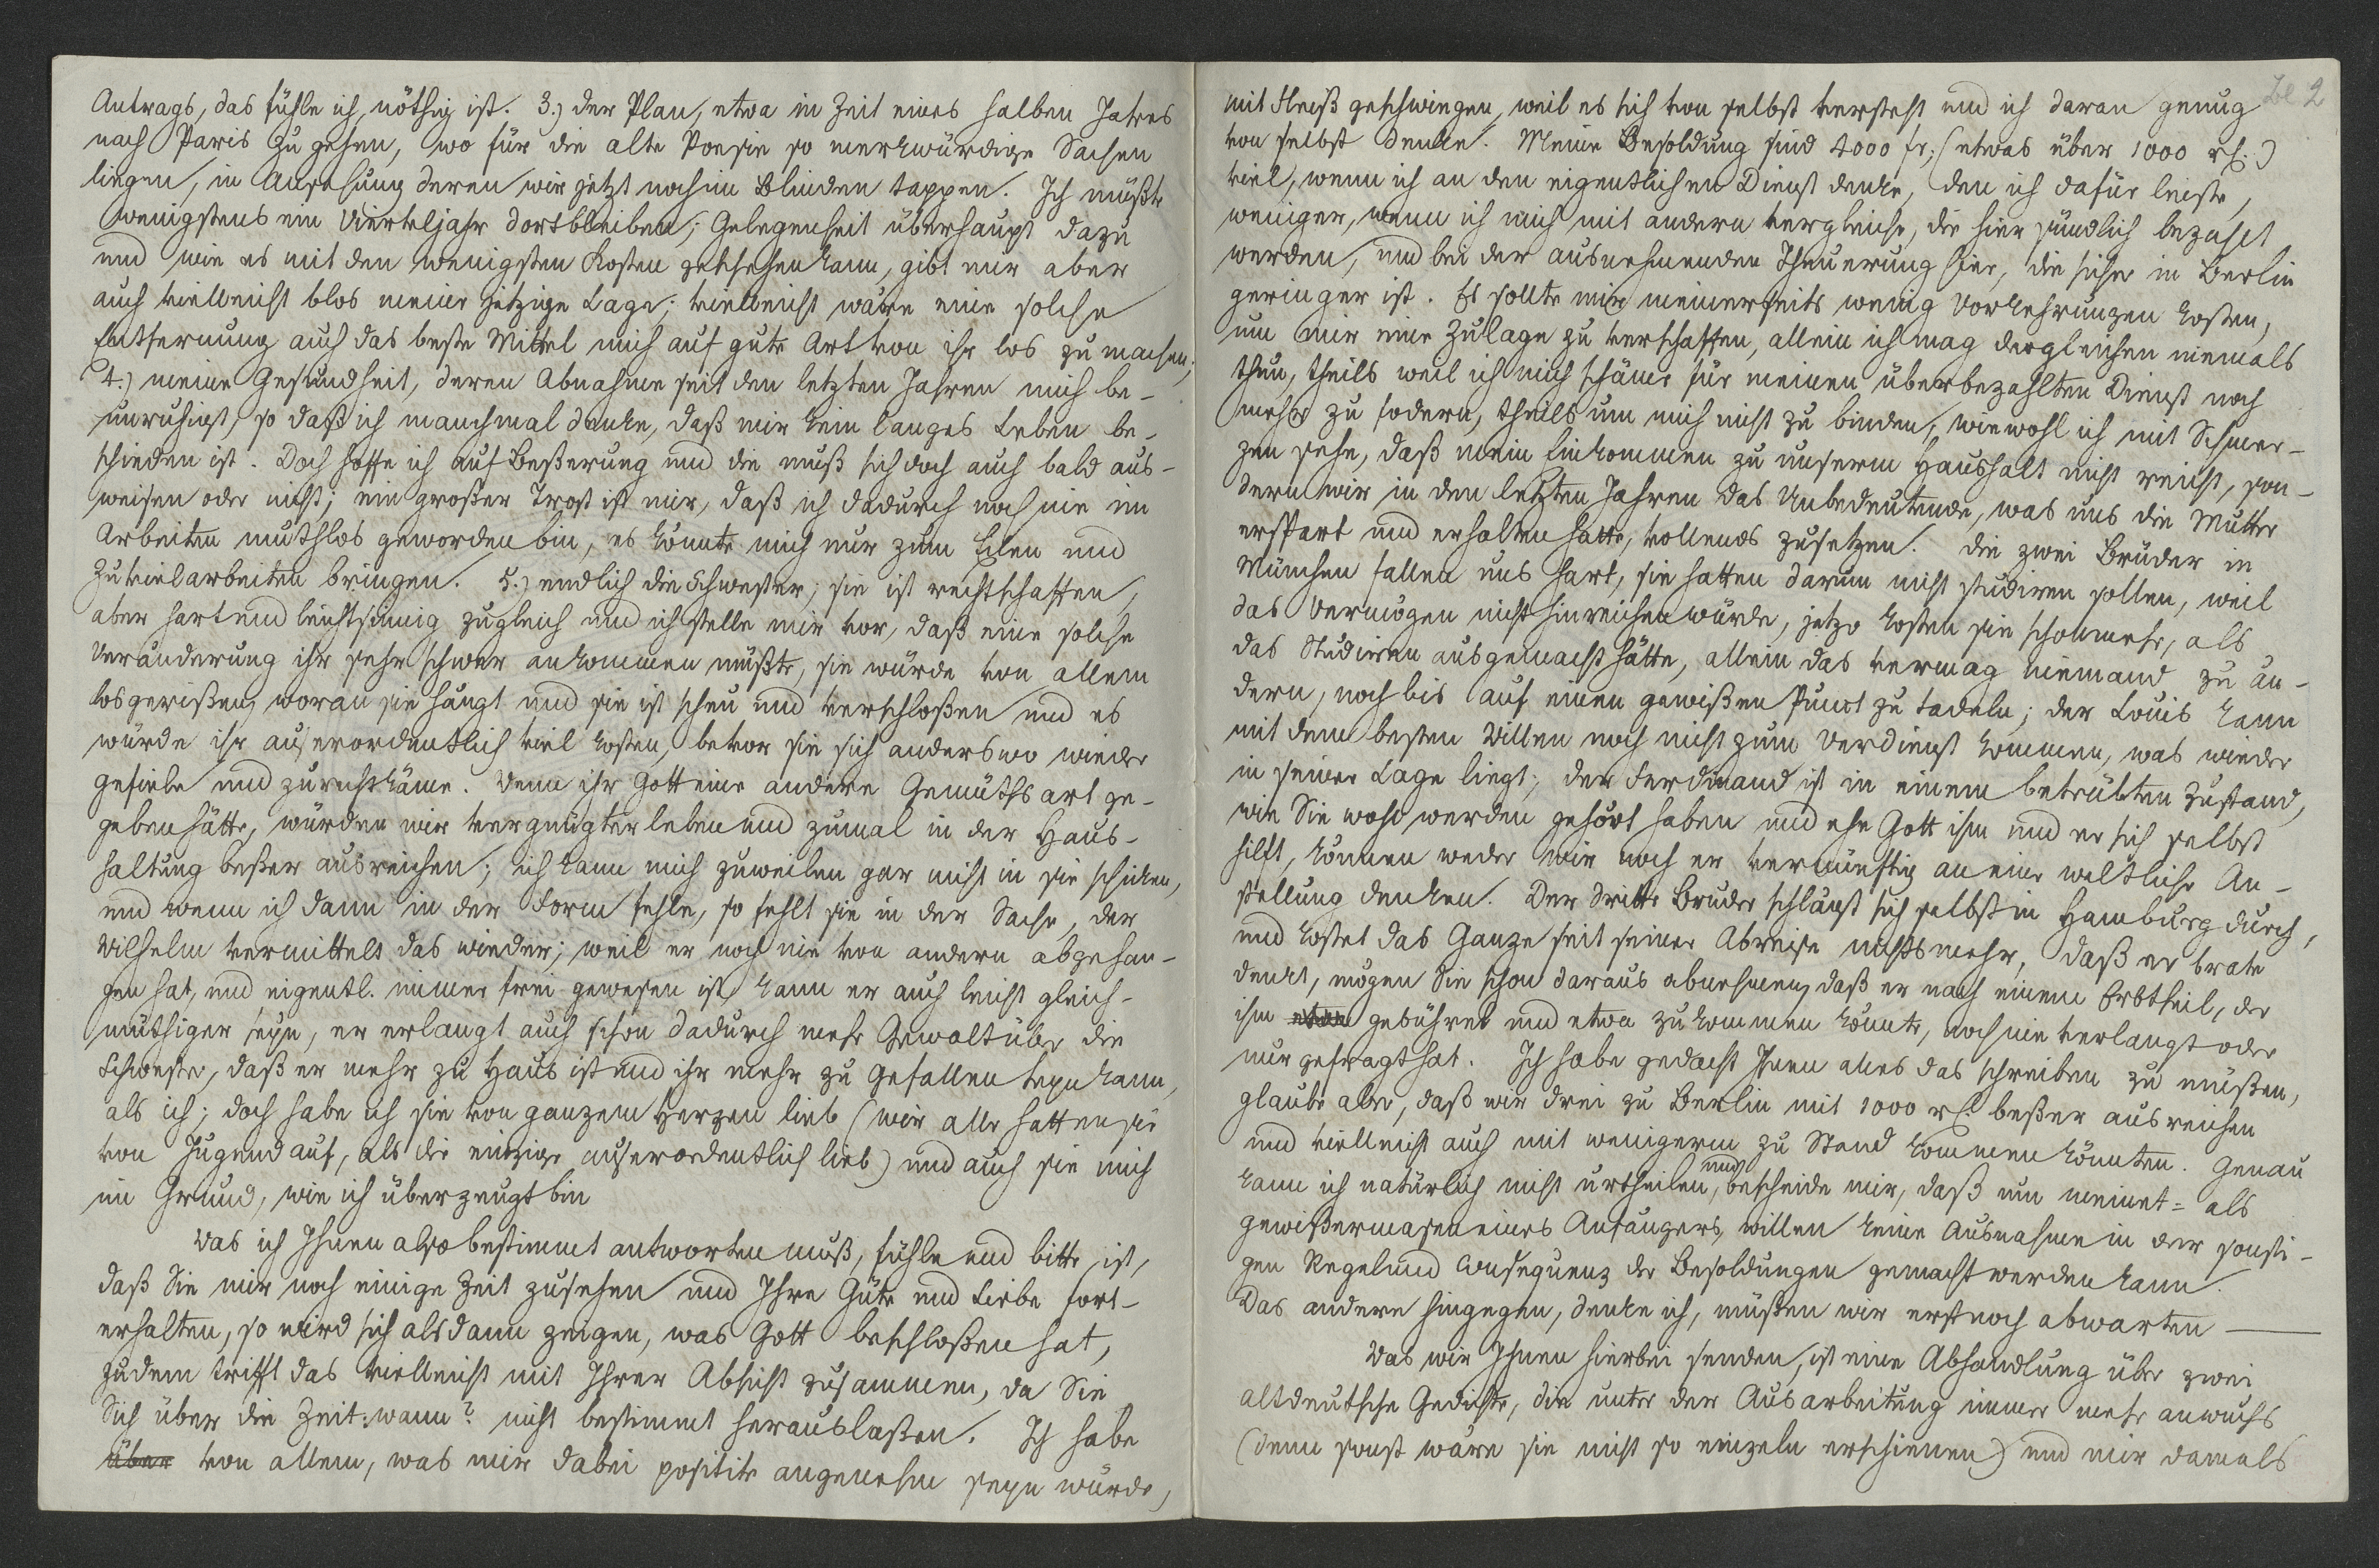 Antrags, das fühle ich, nöthig ist. 3.) der Plan, etwa in Zeit eines halben Jahres
nach Paris zu gehen, wo für die alte Poesie so merkwürdige Sachen
liegen, in Ansehung deren wir jetzt noch im Blinden tappen. Ich müßte
wenigstens ein Vierteljahr dortbleiben; Gelegenheit überhaupt dazu
und wie es mit den wenigsten Kosten geschehen kann, gibt mir aber
auch vielleicht blos meine jetzige Lage; vielleicht wäre eine solche
Entfernung auch das beste Mittel mich auf gute Art von ihr los zu machen;
4.) meine Gesundheit, deren Abnahme seit den letzten Jahren mich be-
unruhigt, so daß ich manchmal denke, daß mir kein langes Leben be-
schieden ist. Doch hoffe ich auf Beßerung und die muß sich doch auch bald aus-
weisen oder nicht; ein großer Trost ist mir, daß ich dadurch noch nie im
Arbeiten muthlos geworden bin, es könnte mich nur zum Eilen und
Zuvielarbeiten bringen. 5.) endlich die Schwester; sie ist rechtschaffen,
aber hart und leichtsinnig zugleich und ich stelle mir vor, daß eine solche
Veränderung ihr sehr schwer ankommen müßte, sie würde von allem
losgerißen, woran sie hängt und sie ist scheu und verschloßen und es
würde ihr auserordentlich viel kosten, bevor sie sich anderswo wieder
gefiele und zurechtkäme. Wenn ihr Gott eine andere Gemüthsart ge-
geben hätte, würden wir vergnügter leben und zumal in der Haus-
haltung beßer ausreichen; ich kann mich zuweilen gar nicht in sie schicken,
und wenn ich dann in der Form fehle, so fehlt sie in der Sache, der
Wilhelm vermittelt das wieder; weil er noch nie von andern abgehan-
gen hat, und eigentl. immer frei gewesen ist, kann er auch leicht gleich-
müthiger seyn, er erlangt auch schon dadurch mehr Gewalt über die
Schwester, daß er mehr zu Haus ist und ihr mehr zu Gefallen seyn kann,
als ich; doch habe ich sie von ganzem Herzen lieb (wir alle hatten sie
von Jugend auf, als die einzige auserordentlich lieb) und auch sie mich
im Grund, wie ich überzeugt bin
Was ich Ihnen also bestimmt antworten muß, fühle und bitte, ist,
daß Sie mir noch einige Zeit zusehen und Ihre Güte und Liebe fort-
erhalten, so wird sich alsdann zeigen, was Gott beschloßen hat,
zudem trifft das vielleicht mit Ihrer Absicht zusammen, da Sie
Sich über die Zeit: wann? nicht bestimmt herauslaßen. Ich habe
über von allem, was mir dabei positiv angenehm seyn würde,
2
mit Fleiß geschwiegen, weil es sich von selbst versteht und ich daran genug
von selbst denke. Meine Besoldung sind 4000 fr. (etwas über 1000 rh.)
viel, wenn ich an den eigentlichen Dienst denke, den ich dafür leiste,
weniger, wenn ich mich mit andern vergleiche, die hier sündlich bezahlt
werden, und bei der ausnehmenden Theuerung hier, die sicher in Berlin
geringer ist. Es sollte mir meinerseits wenig Vorkehrungen kosten,
um mir eine Zulage zu verschaffen, allein ich mag dergleichen niemals
thun, theils weil ich mich schäme für meinen überbezahlten Dienst noch
mehr zu fodern, theils um mich nicht zu binden, wiewohl ich mit Schmer-
zen sehe, daß mein Einkommen zu unserm Haushalt nicht reicht, son-
dern wir in den letzten Jahren das Unbedeutende, was uns die Mutter
erspart und erhalten hatte, vollends zusetzen. Die zwei Brüder in
München fallen uns hart, sie hatten darum nicht studiren sollen, weil
das Vermögen nicht hinreichen würde, jetzo kosten sie schon mehr, als
das Studieren ausgemacht hätte, allein das vermag niemand zu än-
dern, noch bis auf einen gewißen Punct zu tadeln; der Louis kann
mit dem besten Willen noch nicht zum Verdienst kommen, was wieder
in seiner Lage liegt; der Ferdinand ist in einem betrübten Zustand,
wie Sie wohl werden gehört haben und ehe Gott ihm und er sich selbst
hilft, können weder wir noch er vernünftig an eine weltliche An-
stellung denken. Der dritte Bruder schlägt sich selbst in Hamburg durch,
und kostet das Ganze seit seiner Abreise nichts mehr, daß er brav
denkt, mögen Sie schon daraus abnehmen, daß er nach einem Erbtheil, der
ihm etwa gebühret und etwa zukommen könnte, noch nie verlangt oder
nur gefragt hat. Ich habe gedacht Ihnen alles das schreiben zu müßen,
glaube aber, daß wir drei zu Berlin mit 1000 rh. beßer ausreichen
und vielleicht auch mit wenigerm zu Stand kommen könnten. Genau
kann ich natürlich nicht urtheilen, und bescheide mir, daß um meinet= als
gewißermasen eines Anfängers, willen keine Ausnahme in der sonsti-
gen Regel und Consequenz der Besoldungen gemacht werden kann.
Das andere hingegen, denke ich, müßen wir erst noch abwarten —
Was wir Ihnen hierbei senden, ist eine Abhandlung über zwei
altdeutsche Gedichte, die unter der Ausarbeitung immer mehr anwuchs
(denn sonst wäre sie nicht so einzeln erschienen) und mir damals